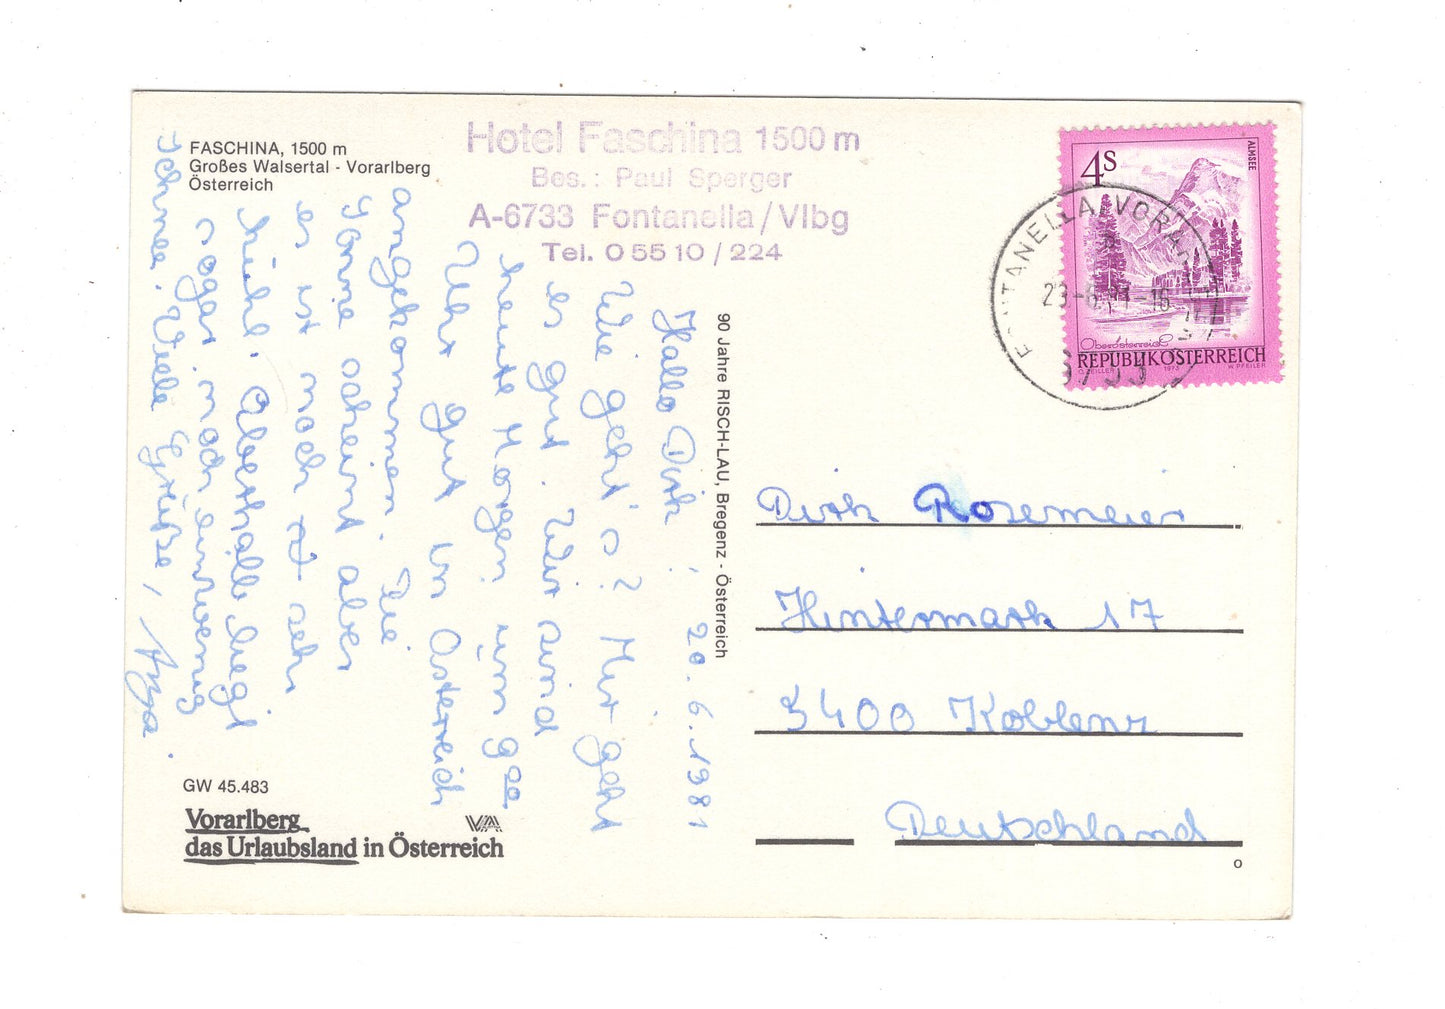 FASCHINA, 1500 m
Großes Walsertal - Vorarlberg
Österreich
Hotel Faschina 1500 m
Bes.: Paul Sperger
A-6733 Fontanella/Vlbg
Tel. 0 55 10 / 224
20.6.1981
Hallo Dirk!
Wie geht's? Mir geht
es gut. Wir sind
heute Morgen um 9 00
Uhr gut in Österreich
angekommen. Die
Sonne scheint aber
es ist noch sehr
kühl. Oberhalb liegt
sogar noch ein wenig
Schnee. Viele Grüße, Anja.
GW 45.483
Vorarlberg
das Urlaubsland in Österreich
VA
90 Jahre RISCH-LAU, Bregenz - Österreich
4 S
ALMSEE
Oberösterreich
REPUBLIK ÖSTERREICH
O. ZEILLER 1973 W. PFEILER
FONTANELLA, VORA
6733
Dirk Rosemeier
Hintermark 17
5400 Koblenz
Deutschland
o